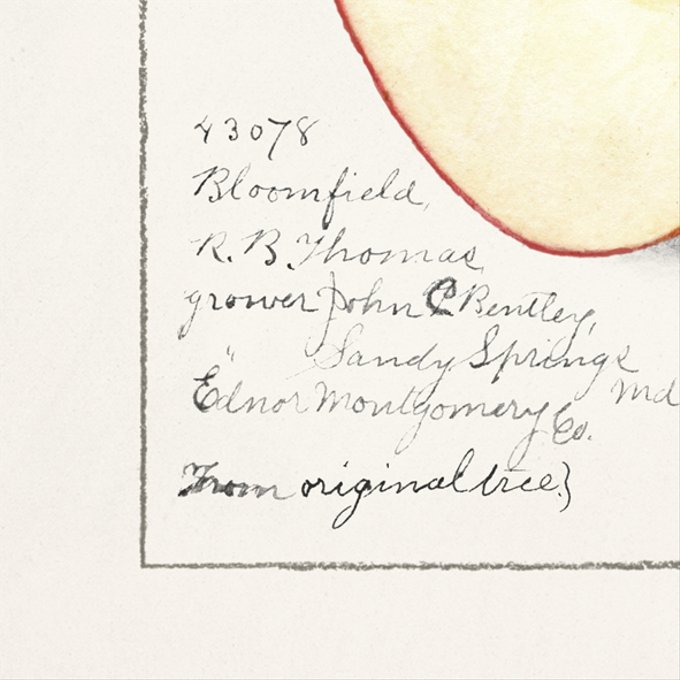 43078
Bloomfield,
R. B. Thomas,
grower John C Bentley,
" Sandy Springs
Ednor Montgomery Co. Md
From original tree.}